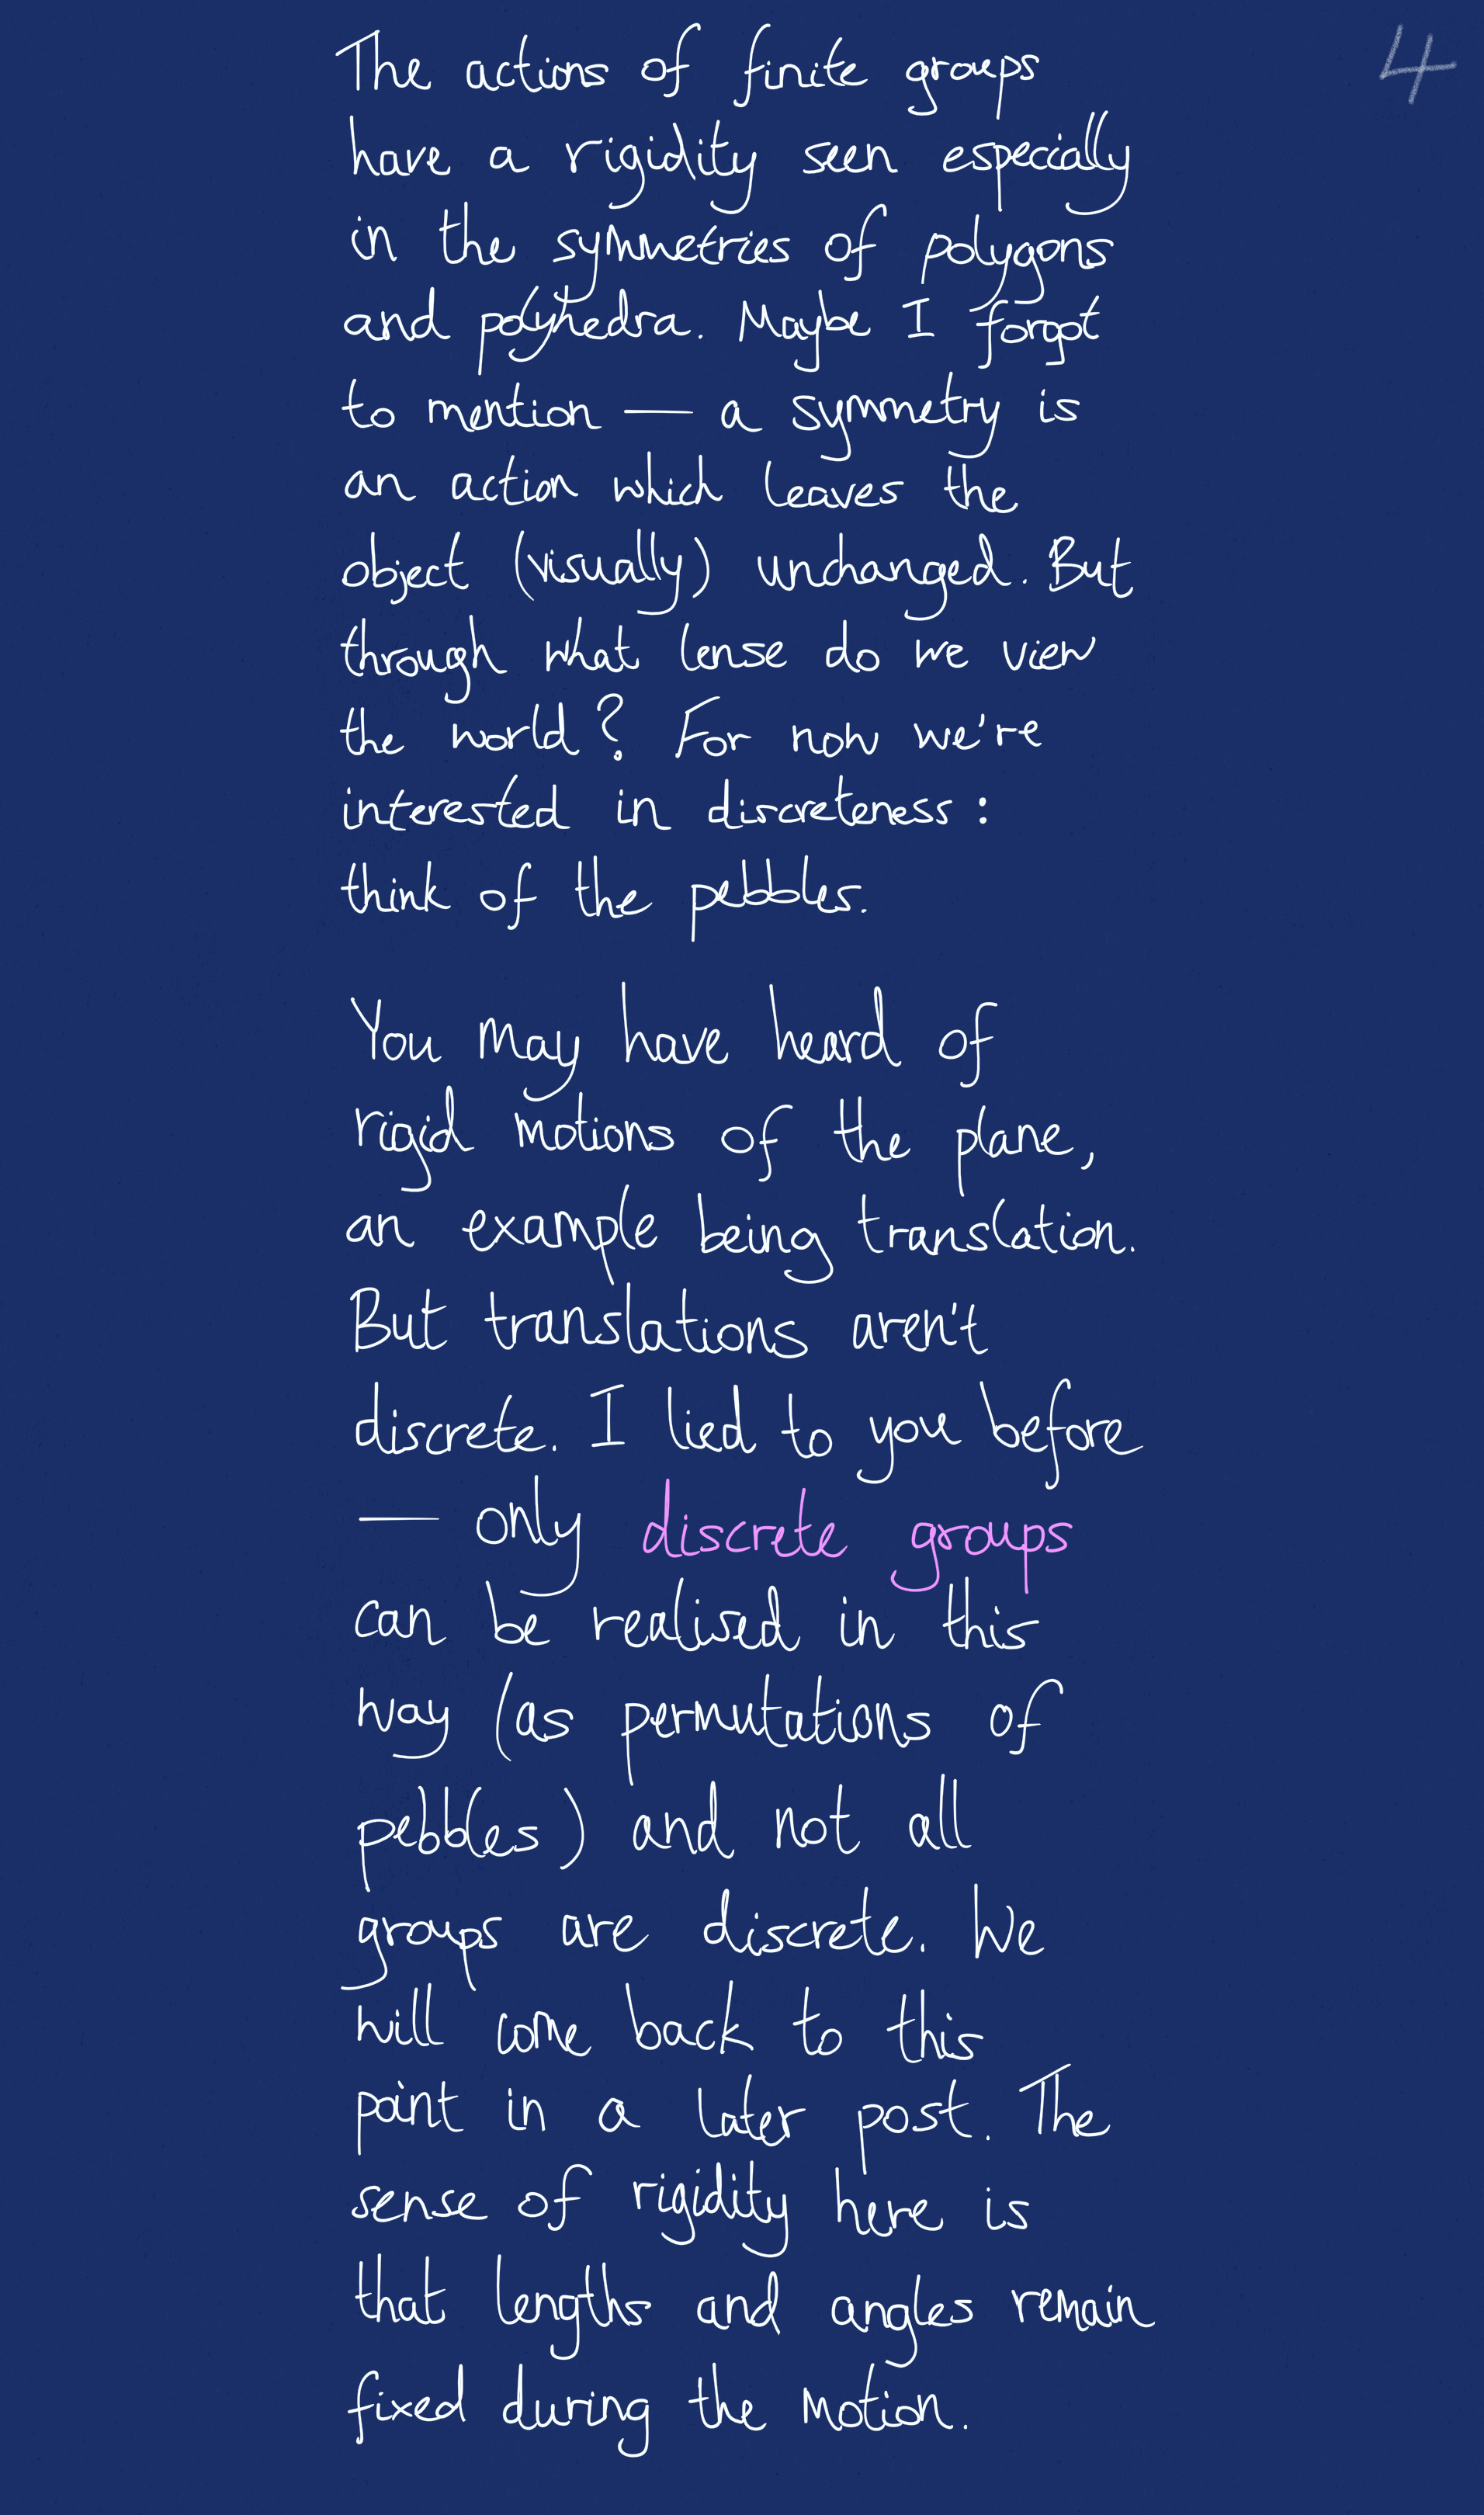 4
The actions of finite groups
have a rigidity seen especially
in the symmetries of polygons
and polyhedra. Maybe I forgot
to mention — a symmetry is
an action which leaves the
object (visually) unchanged. But
through what lense do we view
the world? For now we're
interested in discreteness:
think of the pebbles.
You may have heard of
rigid motions of the plane,
an example being translation.
But translations aren't
discrete. I lied to you before
— only discrete groups
can be realised in this
way (as permutations of
pebbles) and not all
groups are discrete. We
will come back to this
point in a later post. The
sense of rigidity here is
that lengths and angles remain
fixed during the motion.